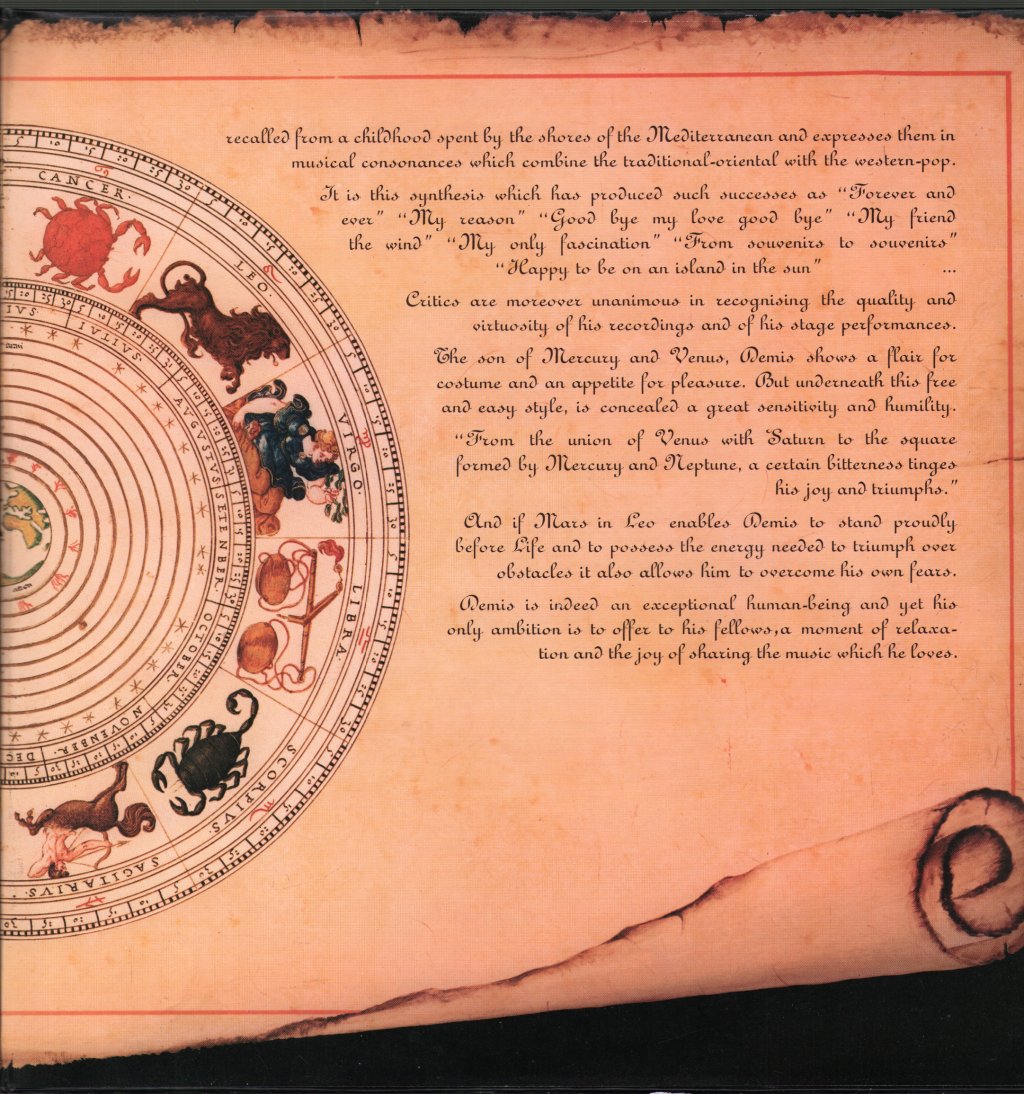 recalled from a childhood spent by the shores of the Mediterranean and expresses them in
musical consonances which combine the traditional-oriental with the western-pop.
It is this synthesis which has produced such successes as "Forever and
ever" "My reason" "Good bye my love good bye" "My friend
the wind" "My only fascination" "From souvenirs to souvenirs"
"Happy to be on an island in the sun" ...
Critics are moreover unanimous in recognising the quality and
virtuosity of his recordings and of his stage performances.
The son of Mercury and Venus, Demis shows a flair for
costume and an appetite for pleasure. But underneath this free
and easy style, is concealed a great sensitivity and humility.
"From the union of Venus with Saturn to the square
formed by Mercury and Neptune, a certain bitterness tinges
his joy and triumphs."
And if Mars in Leo enables Demis to stand proudly
before Life and to possess the energy needed to triumph over
obstacles it also allows him to overcome his own fears.
Demis is indeed an exceptional human-being and yet his
only ambition is to offer to his fellows,a moment of relaxa-
tion and the joy of sharing the music which he loves.
CANCER.
LEO.
VIRGO.
LIBRA.
SCORPIUS.
SAGITARIUS.
AVGVSTVS
SETENBER.
OCTOBER.
NOVENBER.
DEC